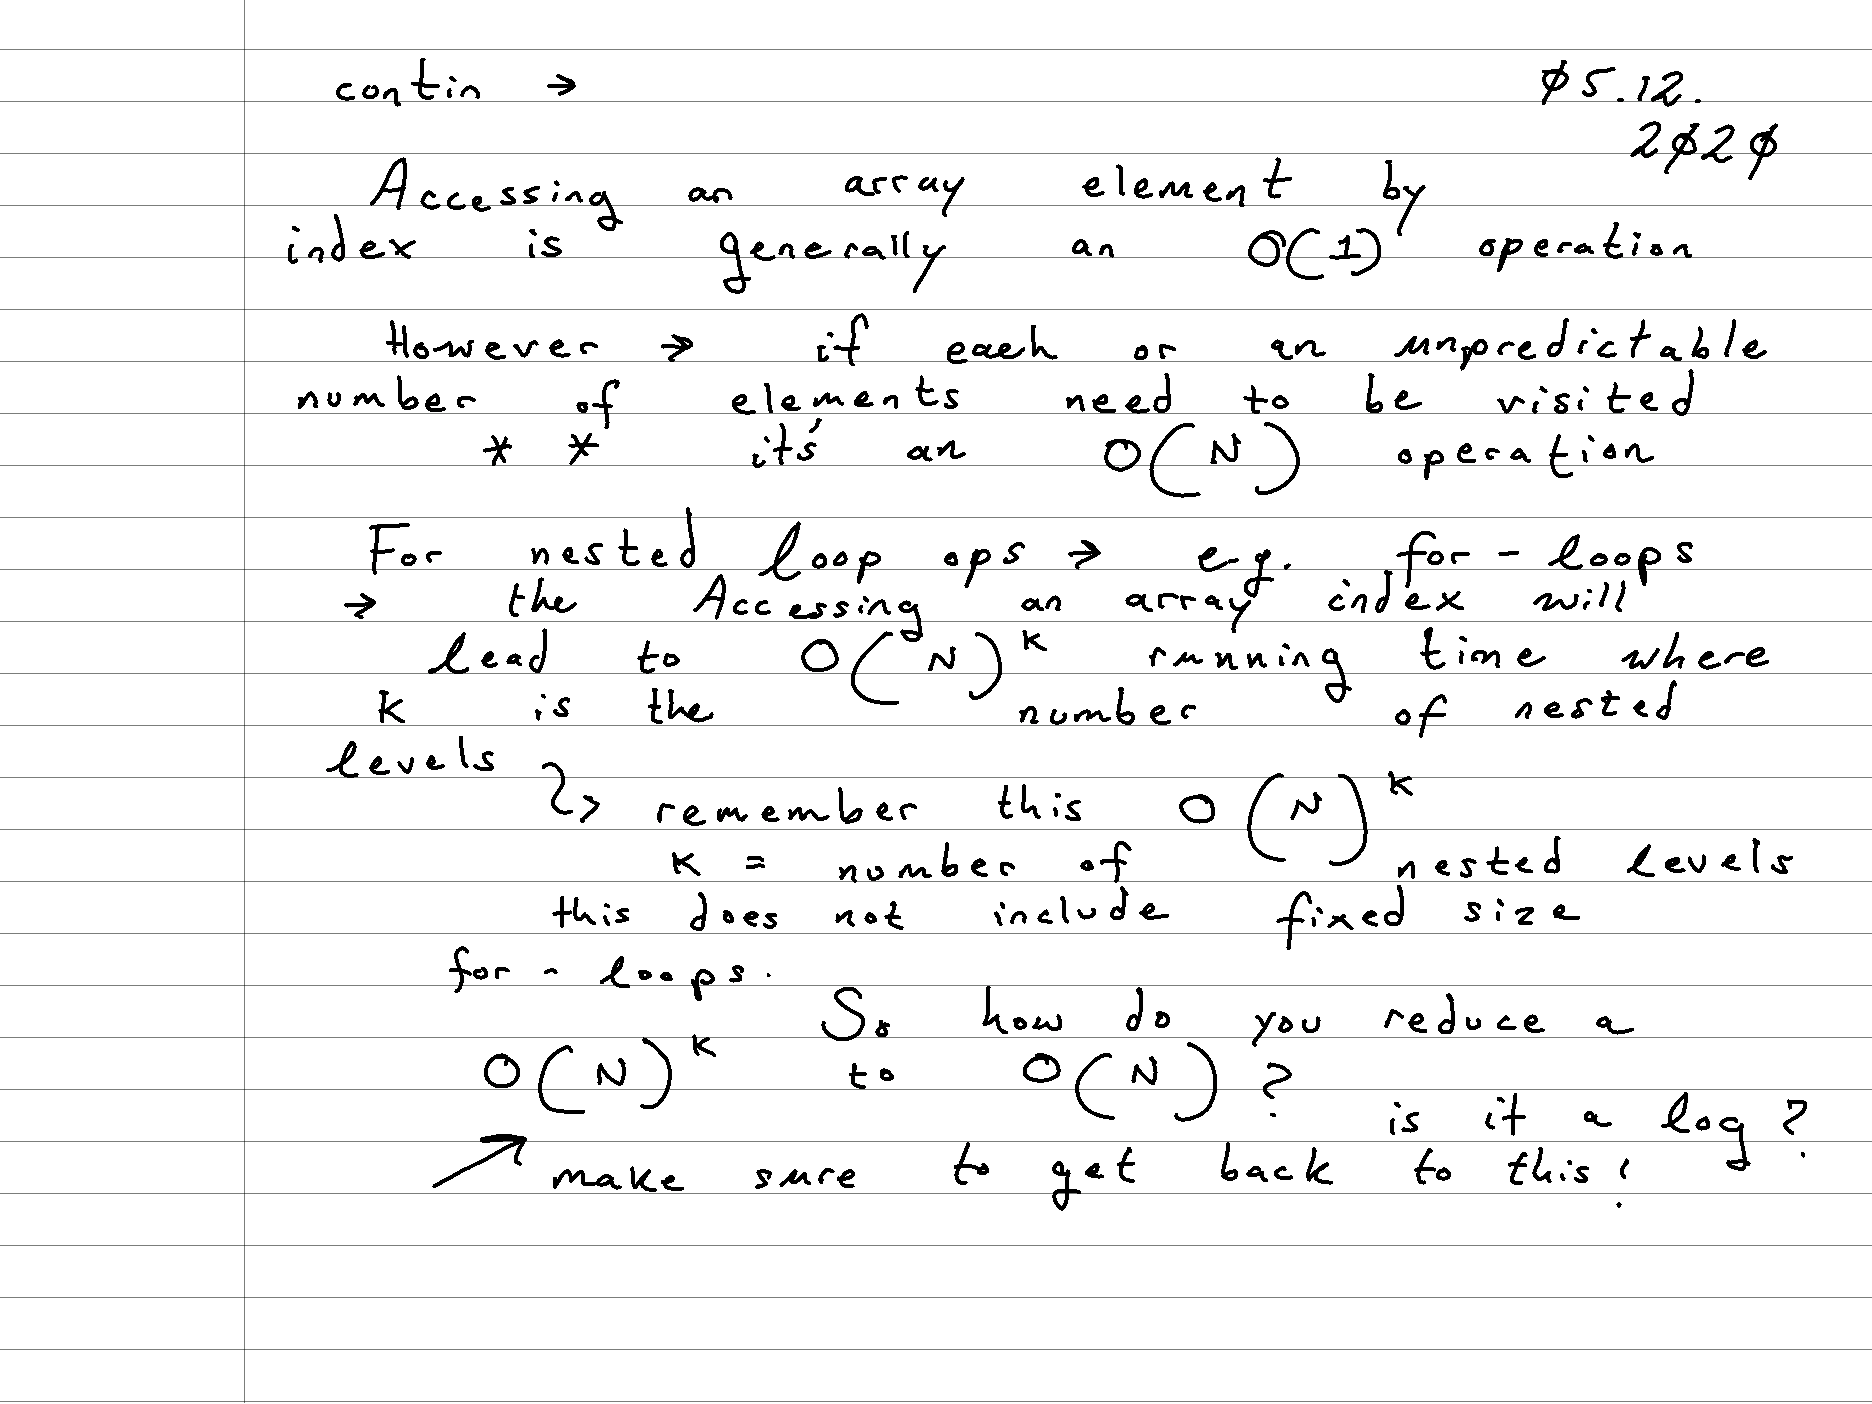 contin → ø5.12.
2ø2ø
Accessing an array element by
index is generally an O(1) operation
However → if each or an unpredictable
number of elements need to be visited
* * it's an O(N) operation
For nested loop ops → e.g. for - loops
→ the Accessing an array index will
lead to O(N)^K running time where
K is the number of nested
levels
↳ remember this O(N)^K
K = number of nested levels
this does not include fixed size
for - loops.
So how do you reduce a
O(N)^K to O(N)?
is it a log?
↗ make sure to get back to this!